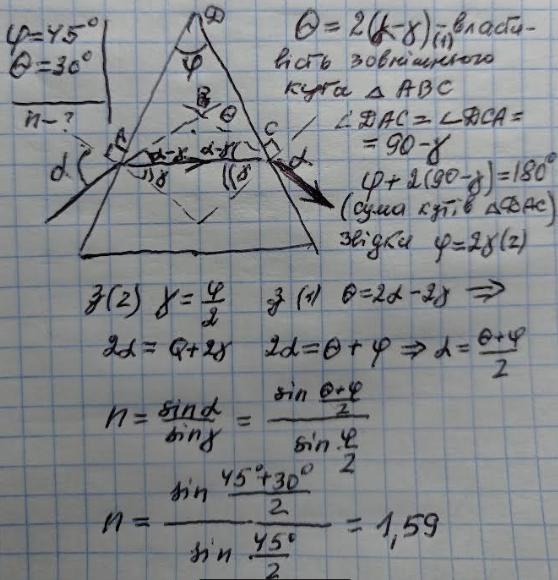 φ=45°
θ=30°
n-?
D
φ
B
θ
A
C
α
α-γ
α-γ
α
γ
γ
θ = 2(α-γ)-(1) власти-
вість зовнішнього
кута △ ABC
∠DAC = ∠DCA =
= 90-γ
φ + 2(90-γ) = 180°
(сума кутів △DAC)
звідки φ=2γ(2)
з(2) γ = φ/2 з (1) θ=2α-2γ ⇒
2α = θ+2γ 2α=θ+φ ⇒ α = (θ+φ)/2
n = sinα/sinγ = sin (θ+φ)/2 / sin φ/2
n = sin (45°+30°)/2 / sin 45°/2 = 1,59